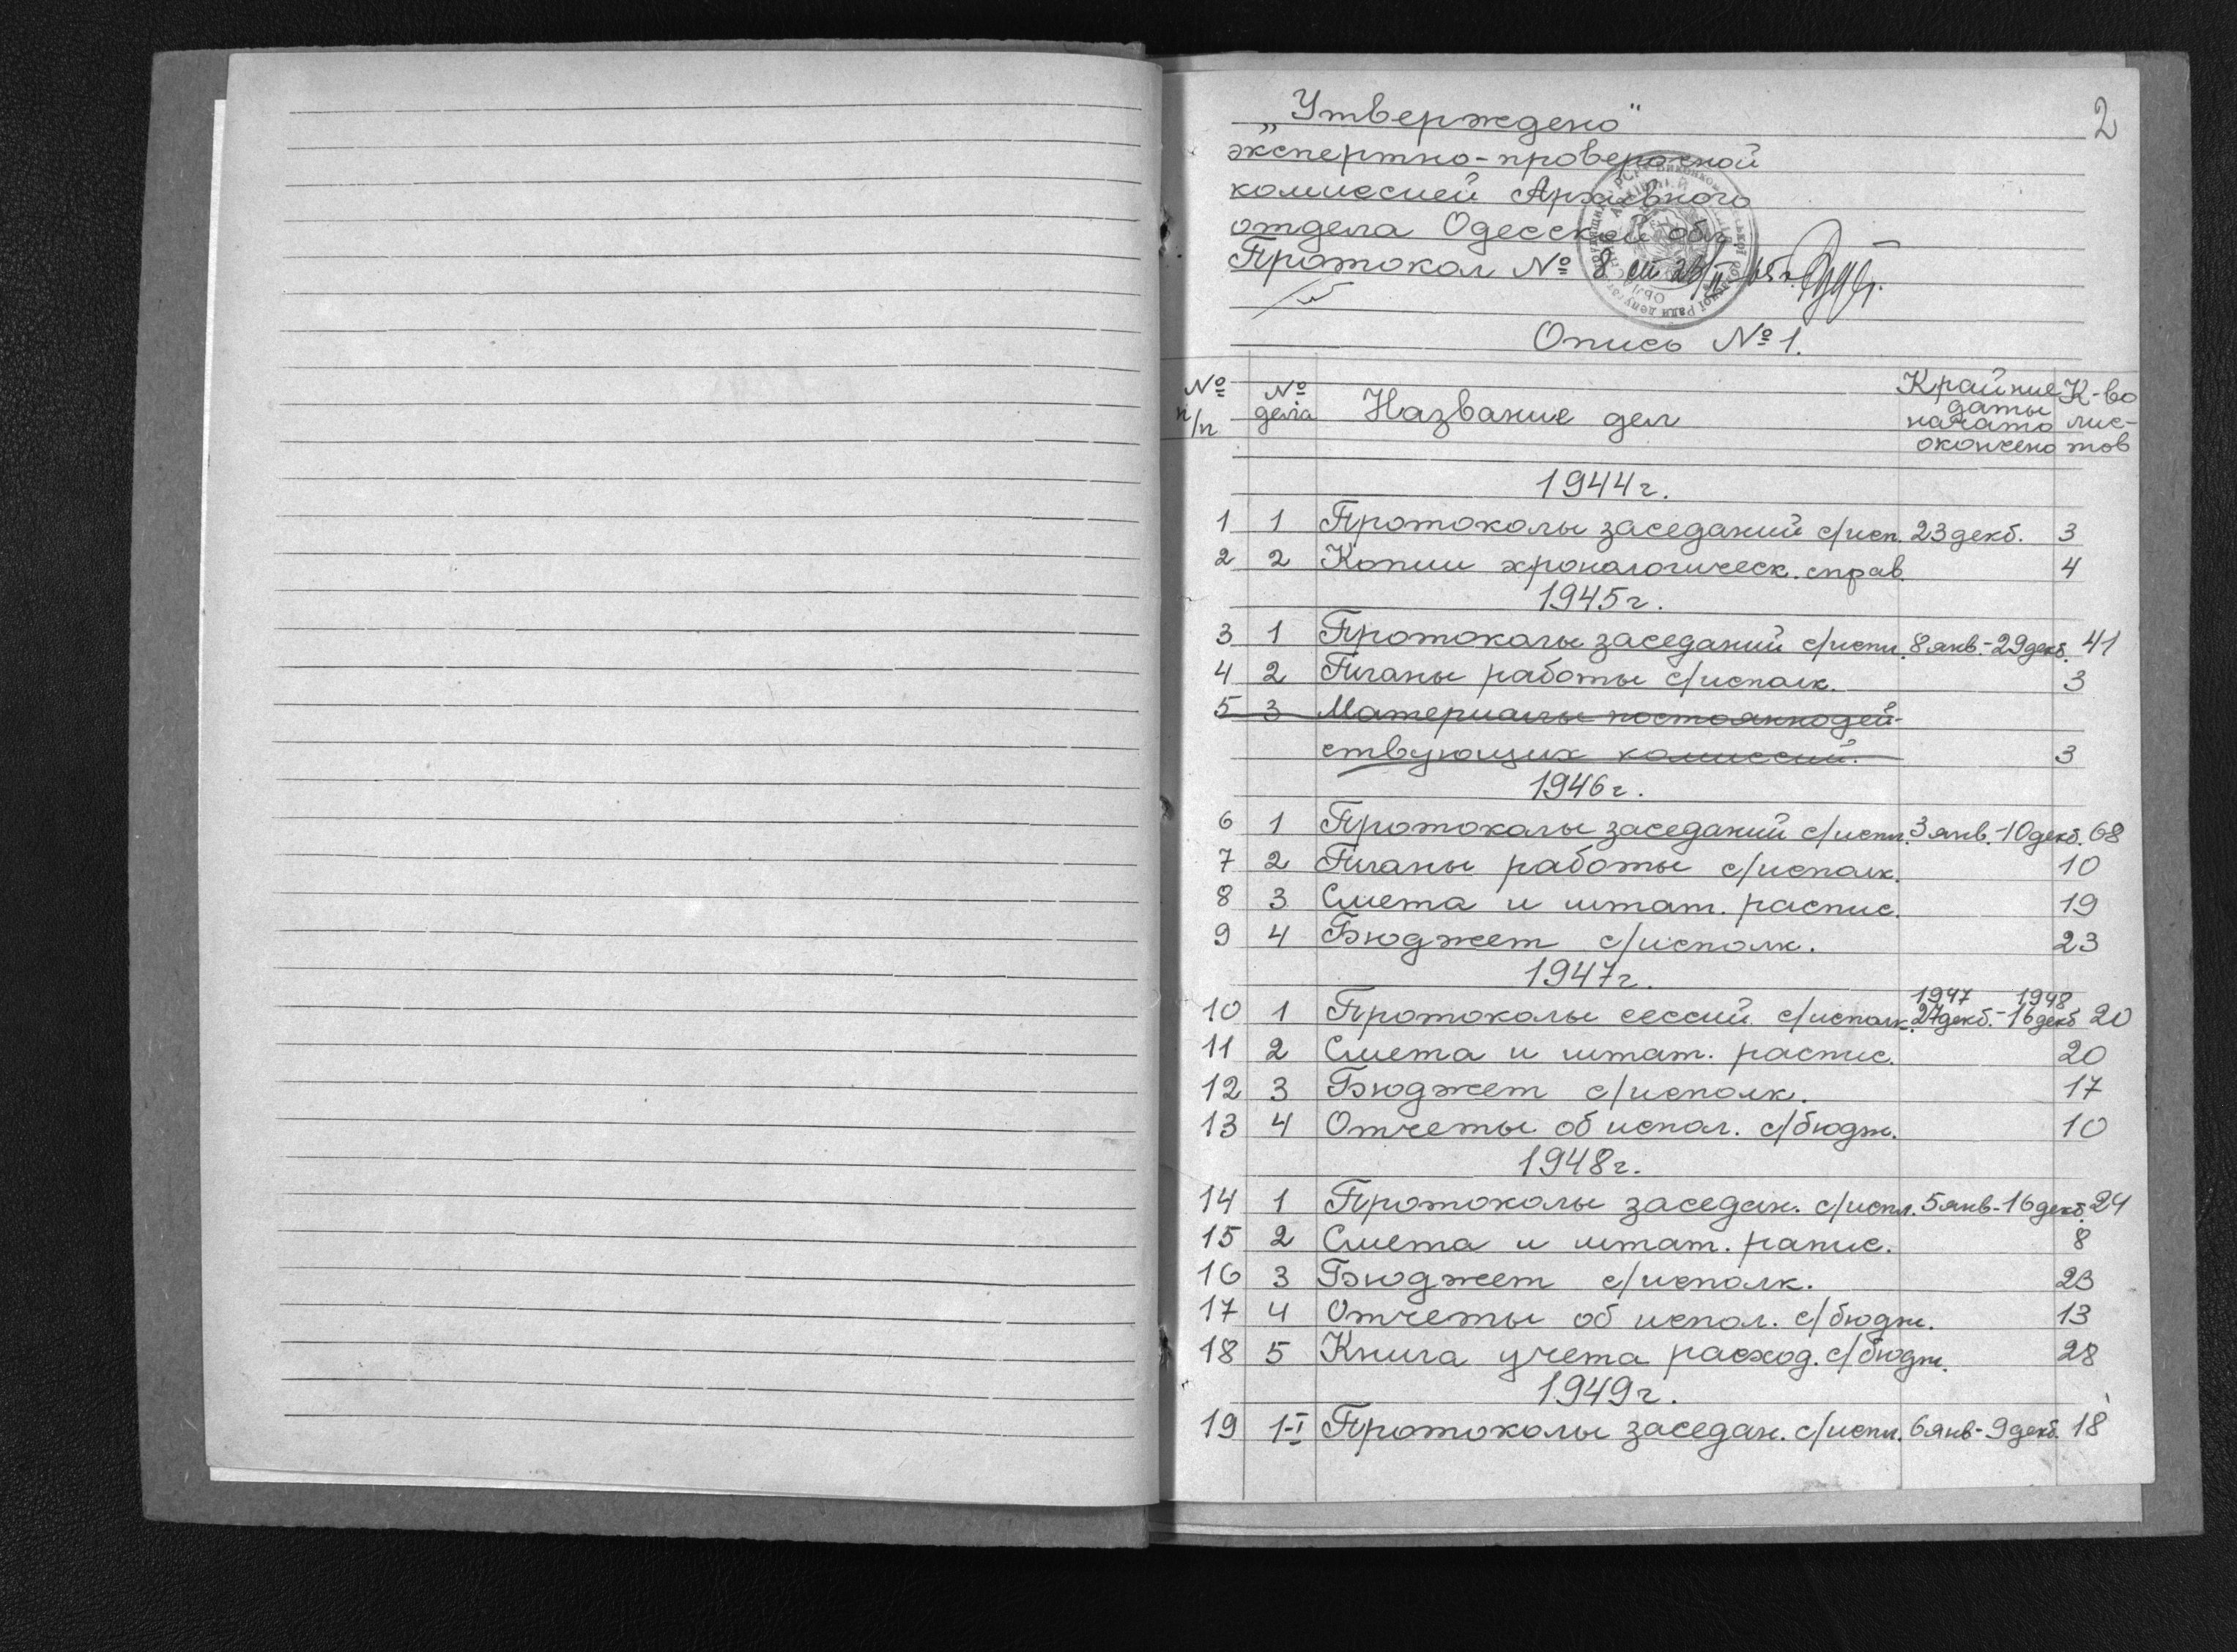 2
„Утверждено"
экспертно-проверочной
комиссией Архивного
отдела Одесской обл.
Протокол № 8 от
Опись № 1.
№ п/п № дела Название дел Крайние даты начато окончено К-во лис-тов
1944г.
1 1 Протоколы заседаний с/исп. 23 декб. 3
2 2 Копии хронологическ. справ. 4
1945г.
3 1 Протоколы заседаний с/испл. 8 янв.-29 декб. 41
4 2 Планы работы с/исполк. 3
5 3 Материалы постояннодей-
ствующих комиссий. 3
1946г.
6 1 Протоколы заседаний с/испл. 3 янв.-10 декб. 68
7 2 Планы работы с/исполк. 10
8 3 Смета и штат. распис. 19
9 4 Бюджет с/исполк. 23
1947г.
1947 1948
10 1 Протоколы сессий с/исполк. 27 декб.-16 декб 20
11 2 Смета и штат. распис. 20
12 3 Бюджет с/исполк. 17
13 4 Отчеты об испол. с/бюдж. 10
1948г.
14 1 Протоколы заседан. с/испл. 5 янв-16 декб. 24
15 2 Смета и штат. рапис. 8
16 3 Бюджет с/исполк. 23
17 4 Отчеты об испол. с/бюдж. 13
18 5 Книга учета расход. с/бюдж. 28
1949г.
19 1-I Протоколы заседан. с/испл. 6 янв-9 декб. 18